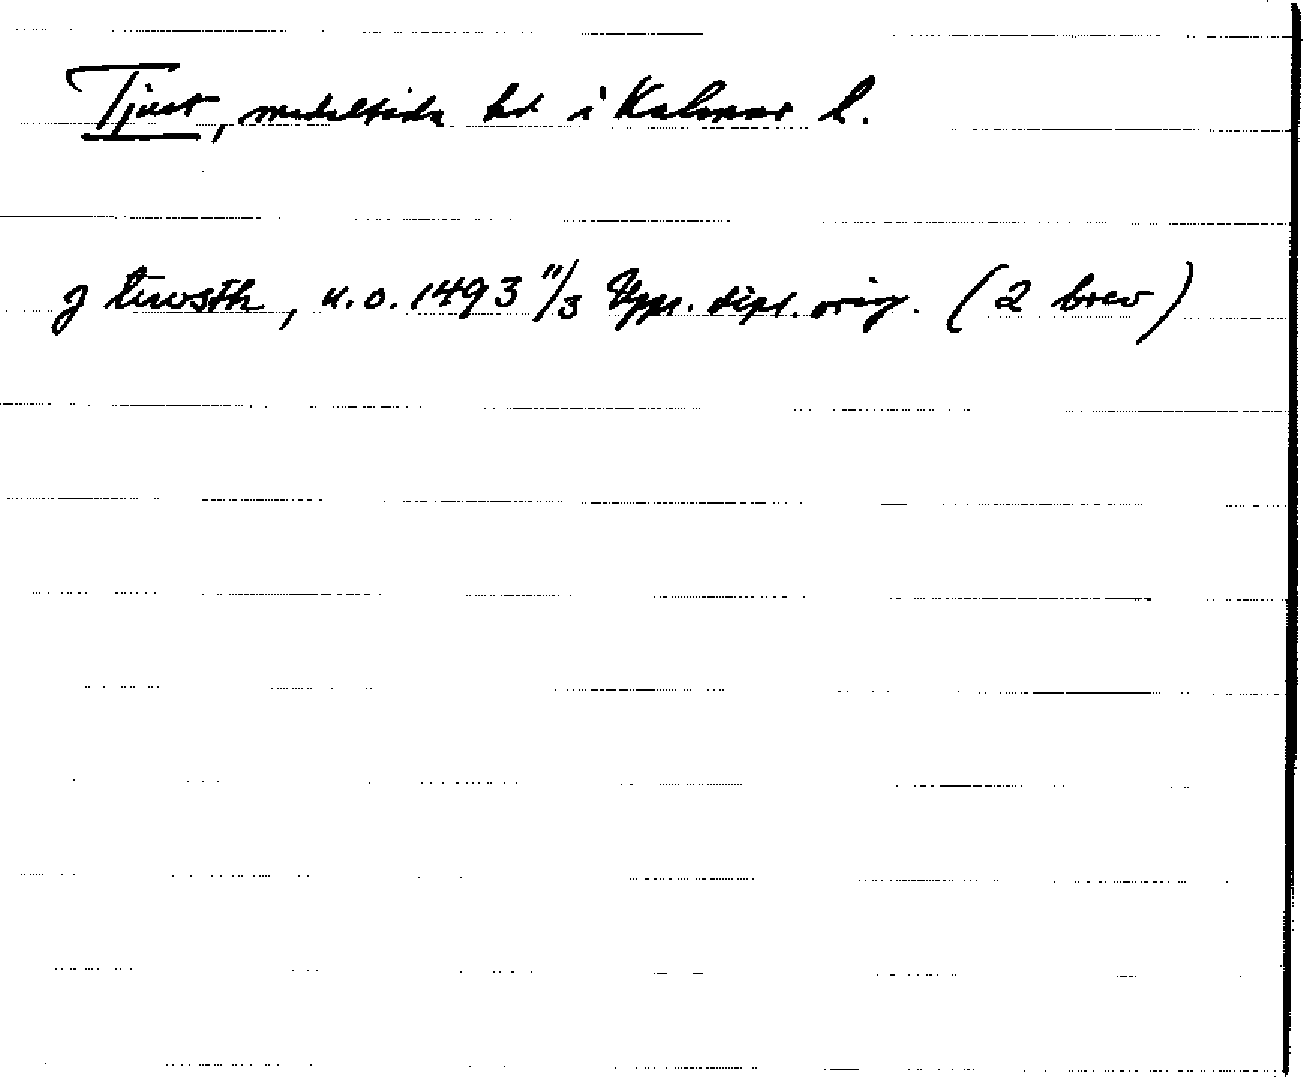 Tjust, medeltida hd i Kalmar l.
J tiwsth, u.o. 1493 11/3 Uppl. dipl. orig. (2 brev)